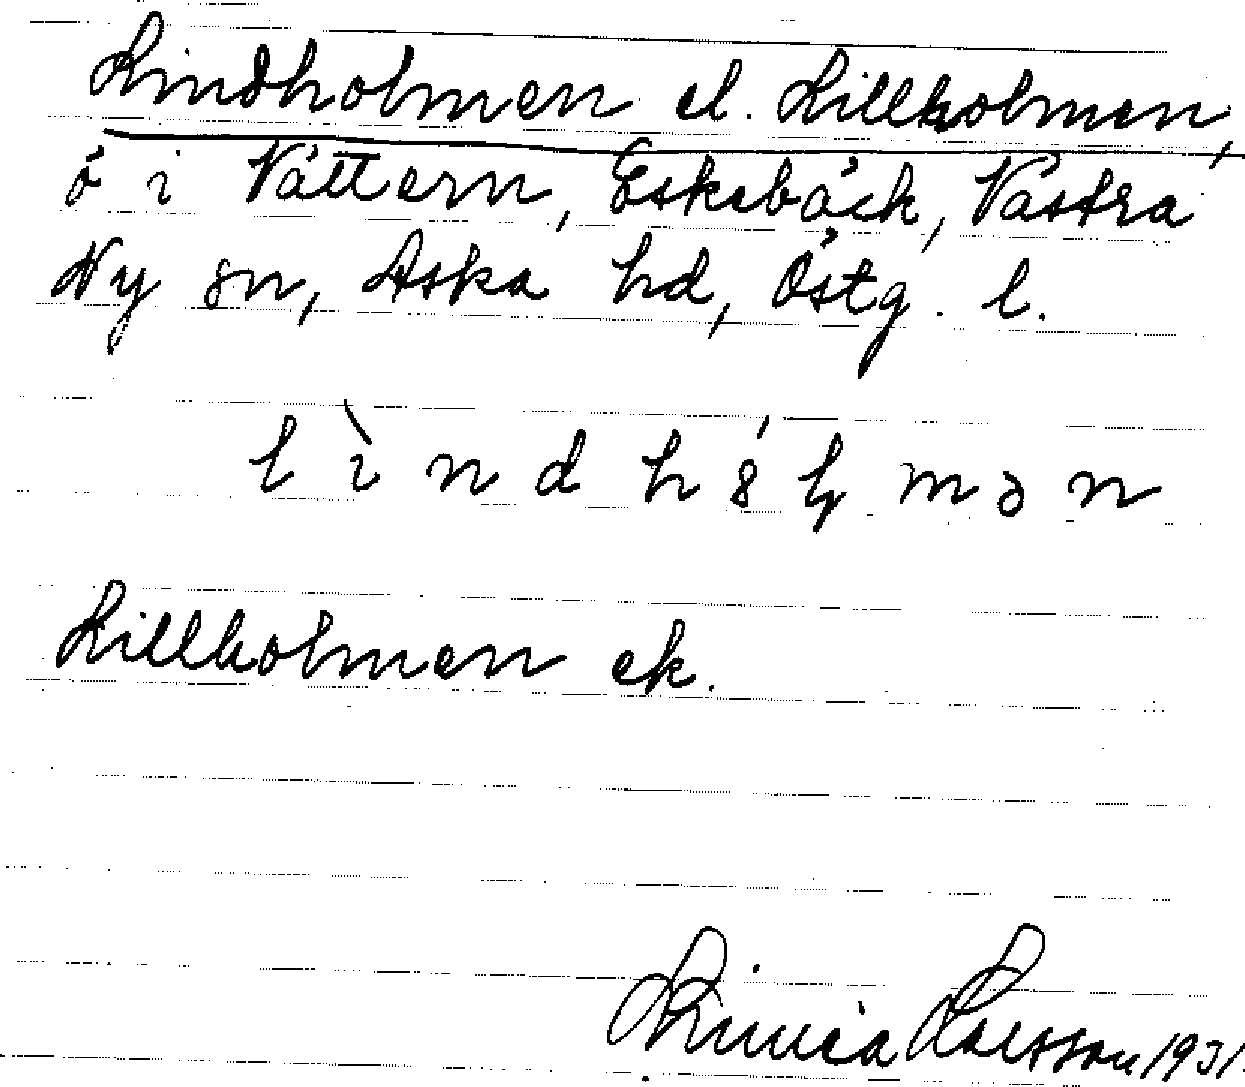 Lindholmen el. Lillholmen,
ö i Vättern, Eskebäck, Västra
Ny sn, Aska hd, Östg. l.
l ì n d h m ə n
Lillholmen ek.
Linnéa Larsson 1931.